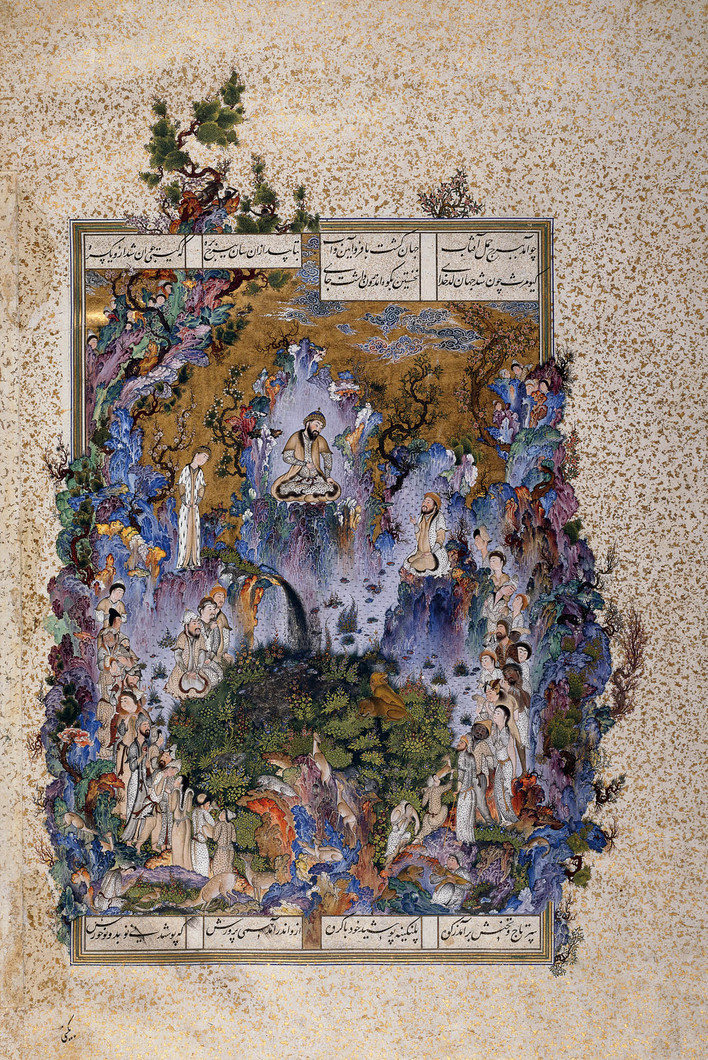 چو آمد ببرج حمل آفتاب جهان گشت با فر و آیین و آب بتابید ازان سان ز برج بره که گیتی جوان شد ازو یکسره
کیومرث چون شد جهان کدخدای نخستین بکوه اندرون ساخت جای
سر تاج و تختش برآمد ز کوه پلنگینه پوشید خود با گروه ازو اندر آمد همی پرورش که پوشیدنی نو بد و نو خورش